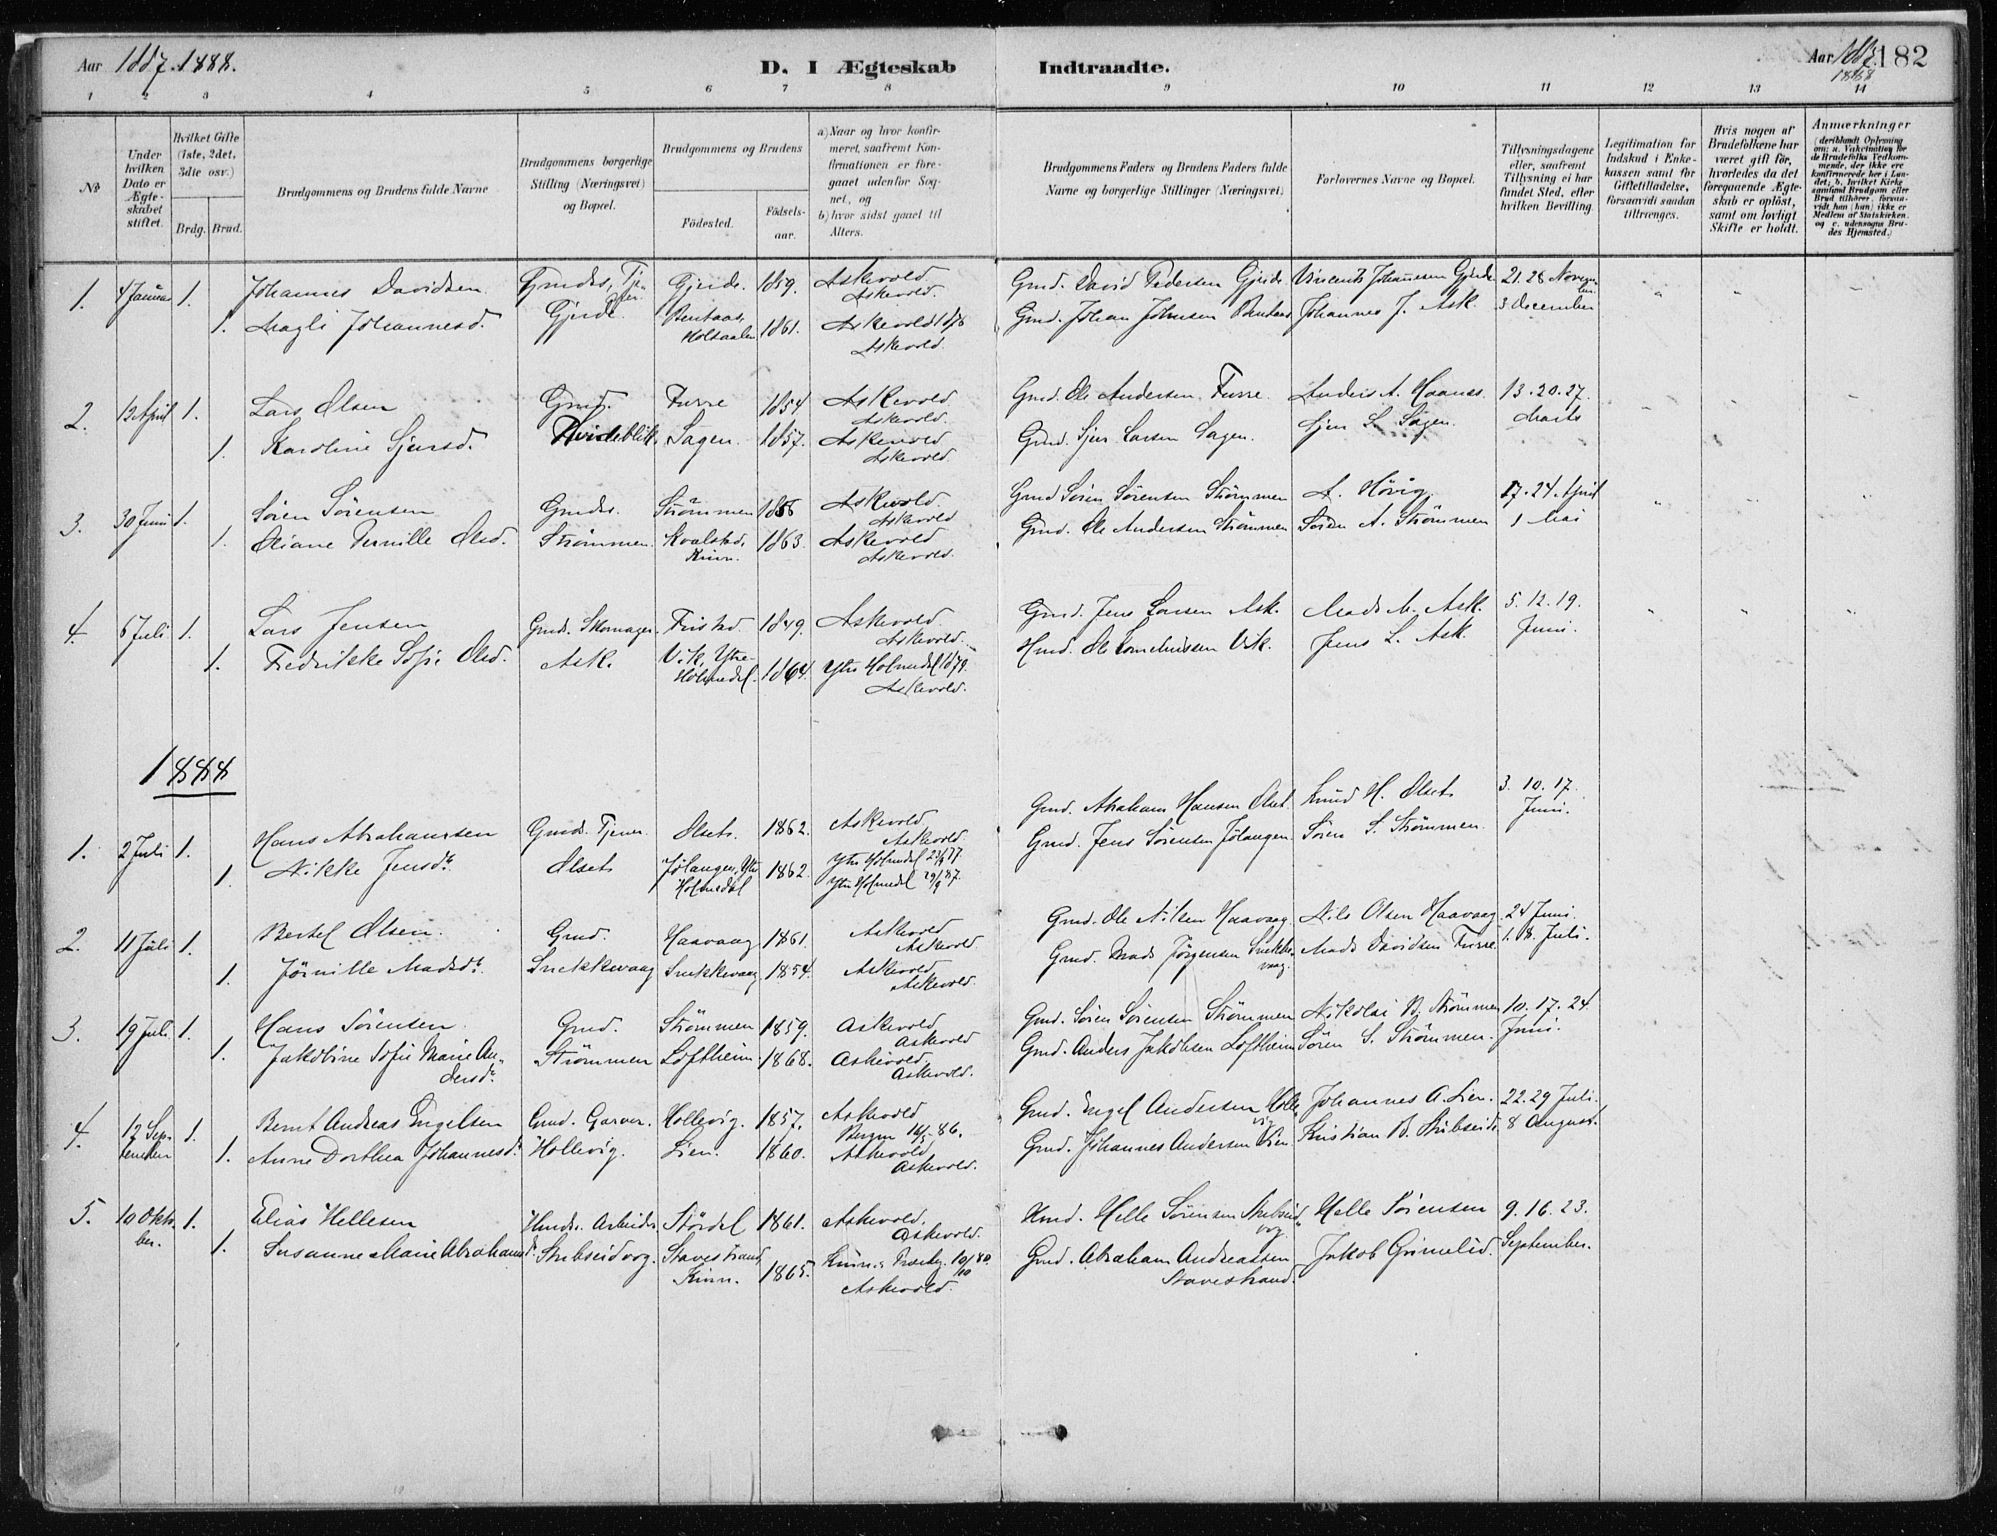 Aar 1887. 1888.
D. I Ægteskab Indtraadte.
Aar 1887. 1888 182
1 2 3 4 5 6 7 8 9 10 11 12 13 14
No
Under hvilken Dato er Ægteskabet stiftet.
Hvilket Gifte (1ste, 2det, 3die osv.)
Brdg. Brud.
Brudgommens og Brudens fulde Navne
Brudgommens borgerlige Stilling (Næringsvei) og Bopæl.
Brudgommens og Brudens
Födested.
Födselsaar.
a) Naar og hvor konfirmeret, saafremt Konfirmationen er foregaaet udenfor Sognet, og
b) hvor sidst gaaet til Alters.
Brudgommens Faders og Brudens Faders fulde Navne og borgerlige Stillinger (Næringsvei)
Forlovernes Navne og Bopæl.
Tillysningsdagene eller, saafremt Tillysning ei har fundet Sted, efter hvilken Bevilling.
Legitimation for Indskud i Enkekassen samt for Giftetilladelse, forsaavidt saadan tiltrænges.
Hvis nogen af Brudefolkene har været gift för, hvorledes da det foregaaende Ægteskab er oplöst, samt om lovligt Skifte er holdt.
Anmærkninger
(deriblandt Oplysning om: a. Vakcination for de Brudefolks Vedkommende, der ikke ere konfirmerede her i Landet; b. hvilket Kirkesamfund Brudgom eller Brud tilhörer, forsaavidt han (hun) ikke er Medlem af Statskirken. og c. udensogns Brudes Hjemsted.)
1. 4 Januar 1. Johannes Davidsen Gmds., Tjener Gjerde. 1859. Askevold Askevold. Gmd. David Pedersen Gjerde Vincents Johannesen Gjerde 21. 28 November
1. Magli Johannesd. Gjerde. Holsaalen 1861. Askevold 1876 Askevold. Gmd. Johan Johnsen Johannes J. Ask. 3 December
2. 13 April 1. Lars Olsen Gmd. Furre 1854 Askevold Askevold. Gmd. Ole Andersen Furre. Anders A. Haanes. 13. 20. 27.
1. Karoline Sjursd. Hvideblik. Sagen. 1857. Askevold Askevold. Gmd. Sjur Larsen Sagen. Sjur S. Sagen. Marts
3. 30 Juni 1. Søren Sørensen Gmds. Strømmen 1856 Askevold. Askevold Gmd Søren Sørensen Strømmen A. Høvig. 17. 24. April
1. Oliane Pernille Olsd. Strømmen. Kvalstad, Kinn. 1863. Askevold Askevold. Gmd. Ole Andersen Strømmen Søren A. Strømmen 1 Mai
4. 6 Juli 1. Lars Jensen Gmds. Skomager. Fristad. 1849. Askevold. Askevold. Gmd. Jens Larsen Ask. Mads M. Ask. 5. 12. 19.
1. Fredrikke Sofie Olsd. Ask. Vik, Ytre-Holmedal. 1864. Ytre Holmedal 1879. Askevold. Hmd. Ole Cornelinssen Vik. Jens L. Ask. Juni.
1888
1. 2 Juli 1. Hans Abrahamsen Gmds. Tjener Olset. 1862. Askevold Askevold. Gmd. Abraham Hansen Olset. Knud H. Olset. 3. 10. 17.
1. Nikke Jensdr. Olset Jølanger, Ytre Holmedal 1862. Ytre Holmedal 23/9 77 Ytre Holmedal 29/9 87. Gmd. Jens Sørensen Jølanger Søren S. Strømmen. Juni.
2. 11 Juli 1. Bertel Olsen. Gmd. Haavaag 1861. Askevold Askevold. Gmd. Ole Nilsen Haavaag. Nils Olsen Haavaag. 24 Juni.
1. Jørnille Madsdr. Snekkevaag Snekkevaag 1854. Askevold Askevold. Gmd. Mads Jørgensen Snekkevaag. Mads Davidsen Furre. 1. 8. Juli.
3. 19 Juli 1. Hans Sørensen Gmd. Strømmen 1859. Askevold Askevold Gmd. Søren Sørensen Strømmen Nikolai B. Strømmen 10. 17. 24.
1. Jakobine Sofie Marie Andersdr. Strømmen Loftheim 1868. Askevold. Askevold. Gmd. Anders Jakobsen Loftheim Søren S. Strømmen. Juni.
4. 12 September 1. Bernt Andreas Engelsen Gmd. Garver. Hollevig. 1857. Askevold Bergen 16/5 86. Gmd. Engel Andersen Hollevig Johannes A. Lien. 22. 29 Juli.
1. Anne Dorthea Johannesdr. Hollevig. Lien. 1860. Askevold, Askevold. Gmd. Johannes Andersen Lien. Kristian B. Stubseide 8 August.
5. 10 Oktober. 1. Elias Hellesen Hmds. Arbeider Stördal 1861. Askevold. Askevold. Hmd. Helle Sørensen Stubseidvog Helle Sørensen 9. 16. 23.
1. Susanne Marie Abrahamsdr. Stubseidvog. Stavestrand, Kinn. 1865. Kinns Præstg. 10/10 80 Askevold. Gmd. Abraham Andreassen Stavestrand. Jakob Grimelid. September.